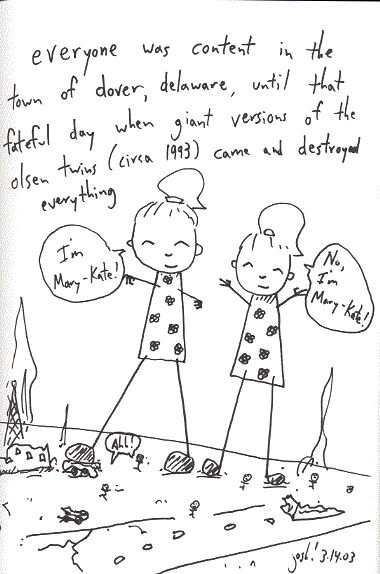 everyone was content in the
town of dover, delaware, until that
fateful day when giant versions of the
olsen twins (circa 1993) came and destroyed
everything
I'm
Mary-Kate!
No,
I'm
Mary-Kate!
Ahh!
josh! 3.14.03